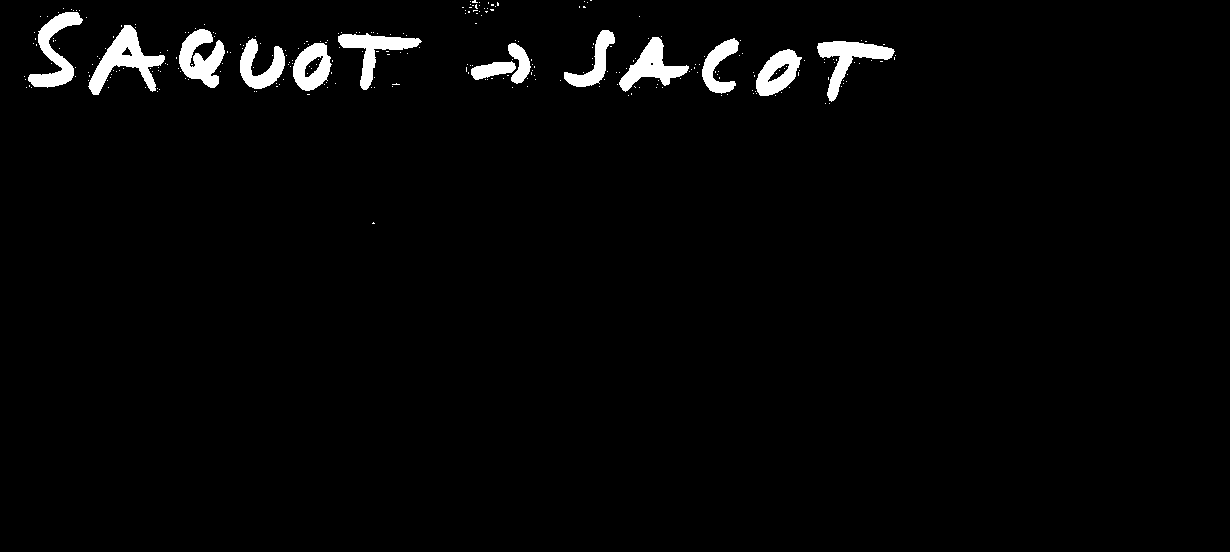 SAQUOT → SACOT